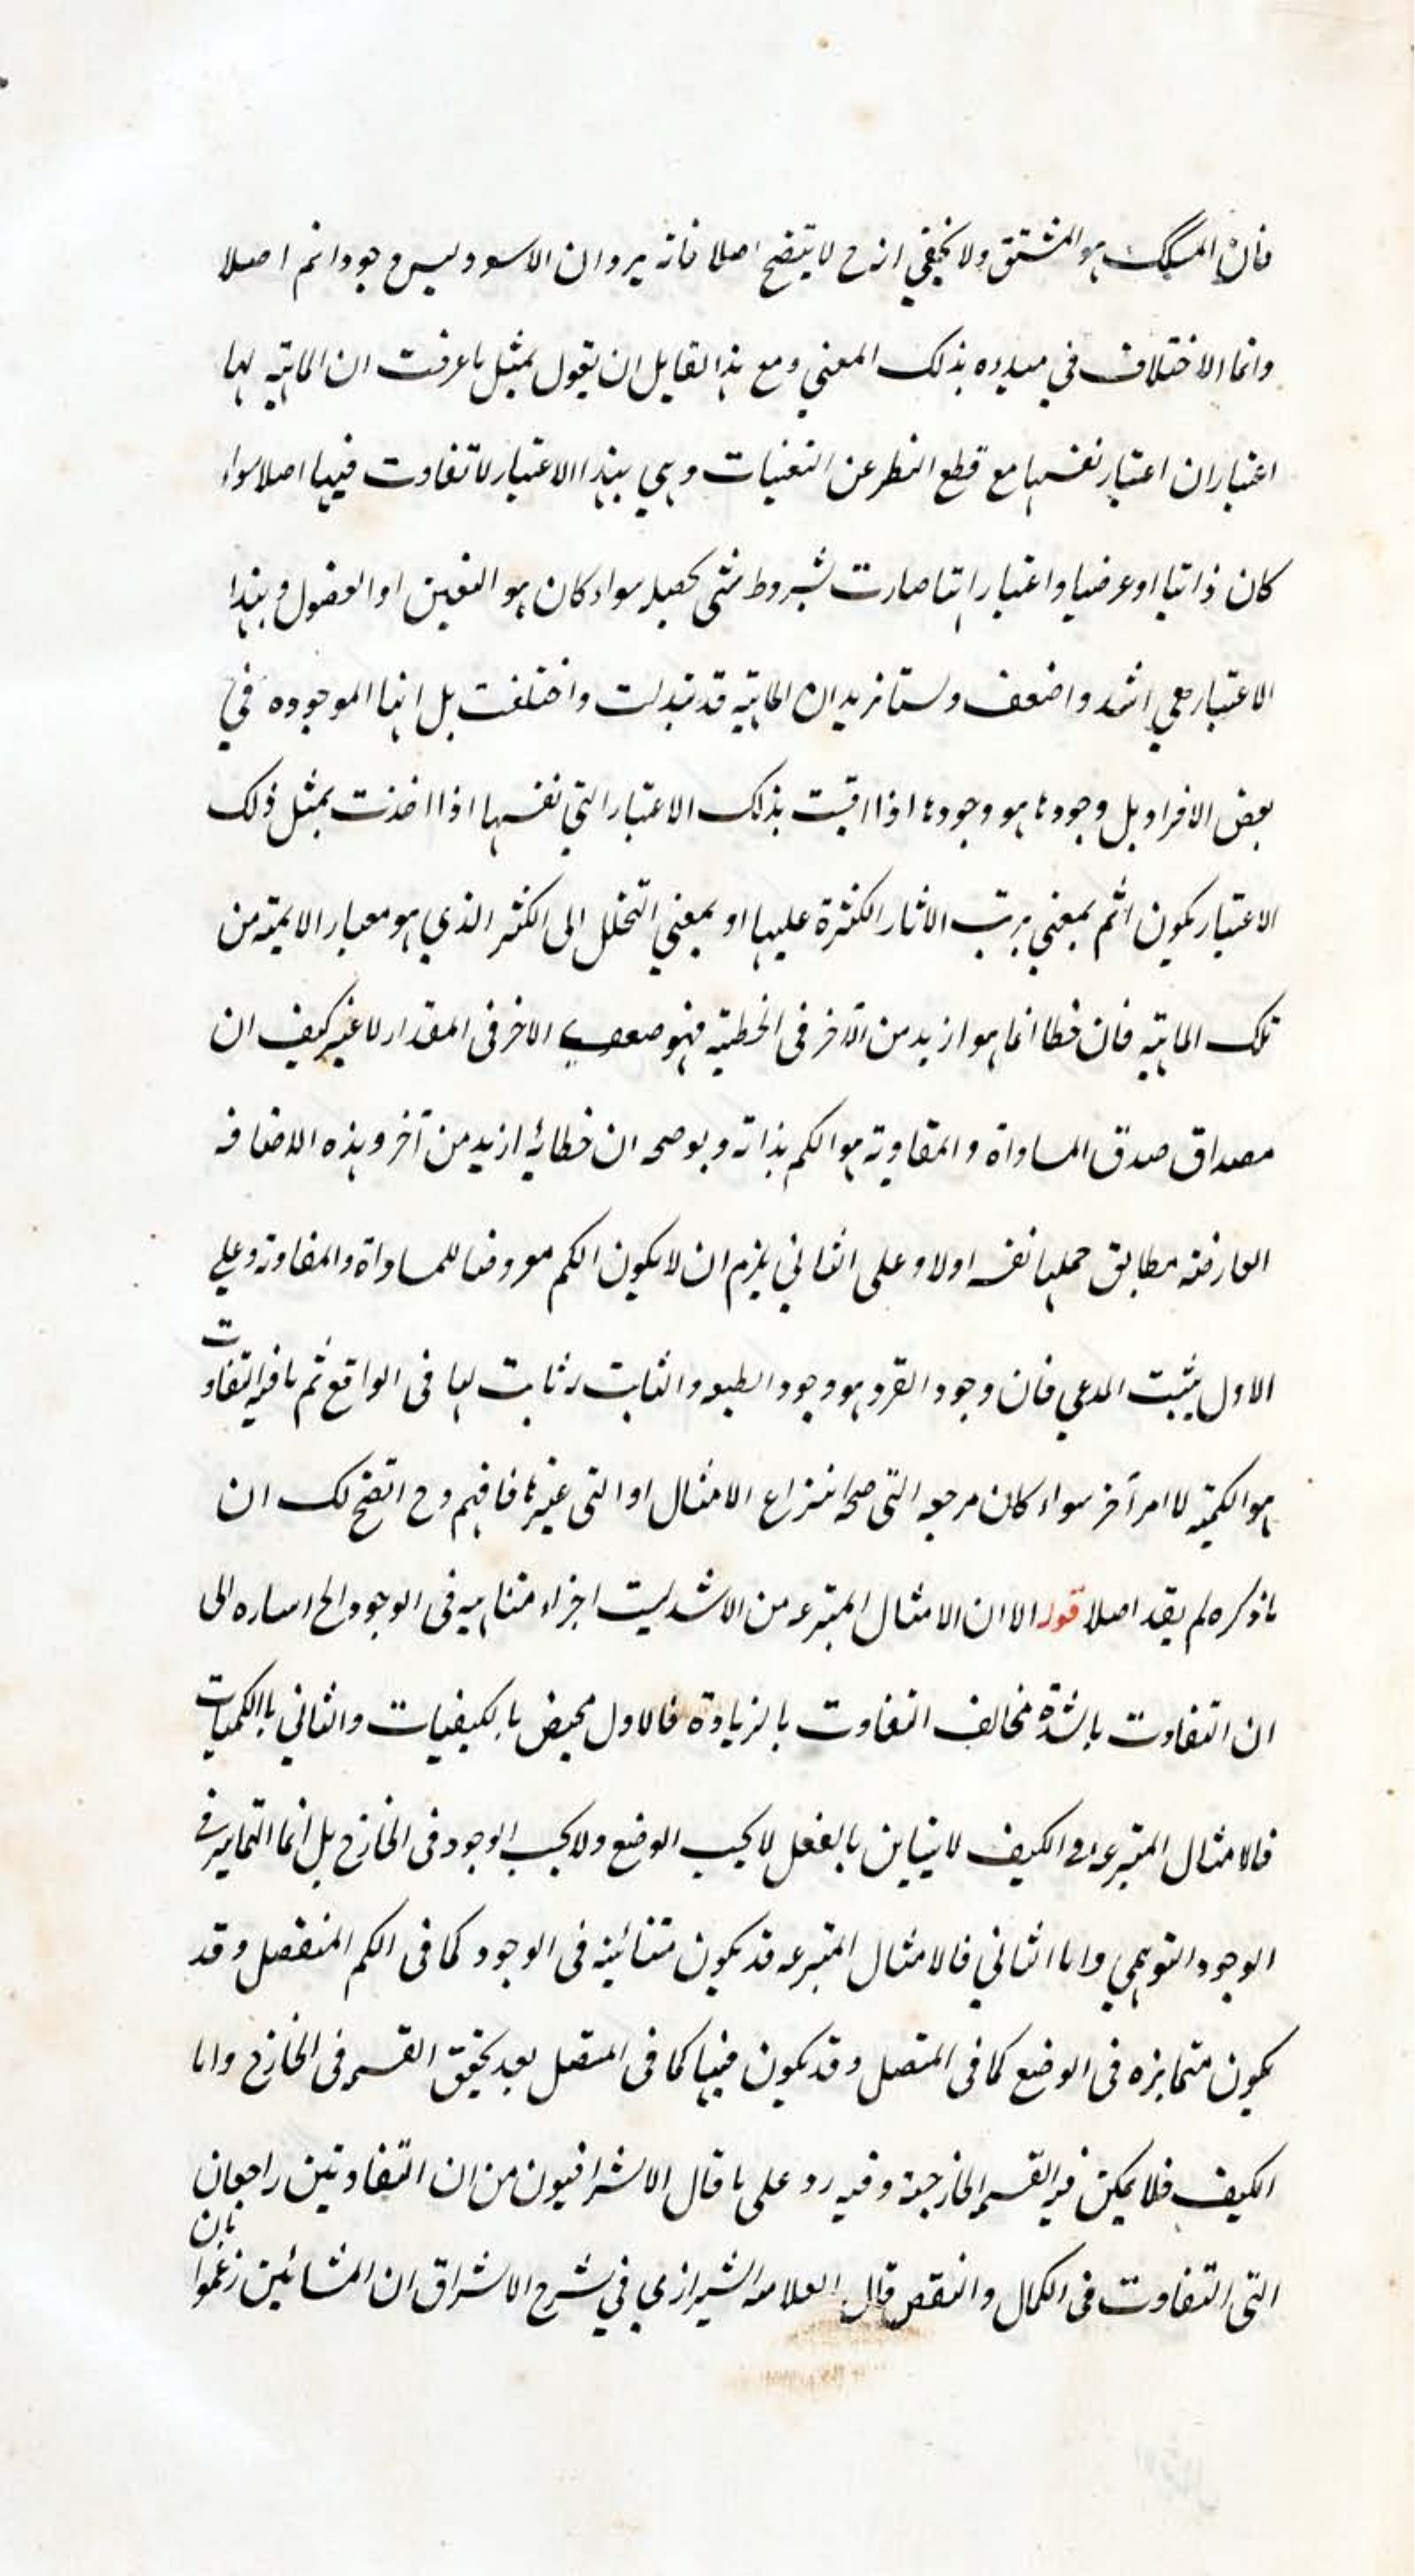 فان المشكك هو المشتق ولا يخفي ان ح لا يتضح اصلا فانه يرد ان الاسود ليس وجودا تم اصلا
وانما الاختلاف في مبدءه بذلك المعني ومع هذا لقايل ان يقول بمثل ما عرفت ان الماهية لها
اعتباران اعتبار نفسها مع قطع النظر عن التعينات وهي بهذا الاعتبار لا تفاوت فيها اصلا سواء
كان ذاتيا او عرضيا واعتبار انها صارت بشروط شي تحصيله سواء كان هو التعين او الفصول وبهذا
الاعتبار هي اشد واضعف ولسنا نريد ان الماهية قد تبدلت واختلفت بل انها الموجوده في
بعض الافراد بل وجودها هو وجودها اذا اقيست بذلك الاعتبار التي نفسها اذا اخذت بمثل ذلك
الاعتبار يكون اتم بمعني يرتب الاثار الكثرة عليها او بمعني التحلل الى الكثير الذي هو معيار الاتمية من
تلك الماهية فان خطا انما هو ازيد من الآخر في الخطية فهو ضعف الاخر في المقدار لا غير كيف ان
مصداق صدق المساواة والمفاوته هو الكم بذاته ويوضحه ان خطا يه ازيد من آخر وهذه الاضافه
العارضه مطابق حملها نفسه اولا وعلى الثاني يلزم ان لا يكون الكم معروضا للمساواة والمفاوته وعلي
الاول يثبت المدعي فان وجود الفرد هو وجود الطبيعه والثابت له ثابت لها في الواقع ثم ما فيه التفاوت
هو الكمية لا امر آخر سواء كان مرجعه التي صحة انتزاع الامثال او التي غيرها فافهم وح اتضح لك ان
ما ذكره لم يفد اصلا قوله الا ان الامثال المنتزعه من الاشد ليست اجزاء متناهيه في الوجود الخ اساره الى
ان التفاوت بالشدة مخالف التفاوت بالزيادة فالاول يختص بالكيفيات والثاني بالكميات
فالامثال المنتزعه في الكيف لا يتباين بالفعل لا بحسب الوضع ولا بحسب الوجود في الخارج بل انما التمايز في
الوجود التوهمي واما الثاني فالامثال المنتزعه قد يكون متباينه في الوجود كما في الكم المنفصل وقد
يكون متمايزه في الوضع كما في المتصل وقد يكون فيها كما في المتصل بعد تحقق القسمه في الخارج واما
الكيف فلا يمكن فيه القسمه الخارجية وفيه رد على ما قال الاشراقيون من ان التفاوتين راجعان
التي التفاوت في الكمال والنقص قال العلامه الشيرازي في شرح الاشراق ان المشائين زعموا بان